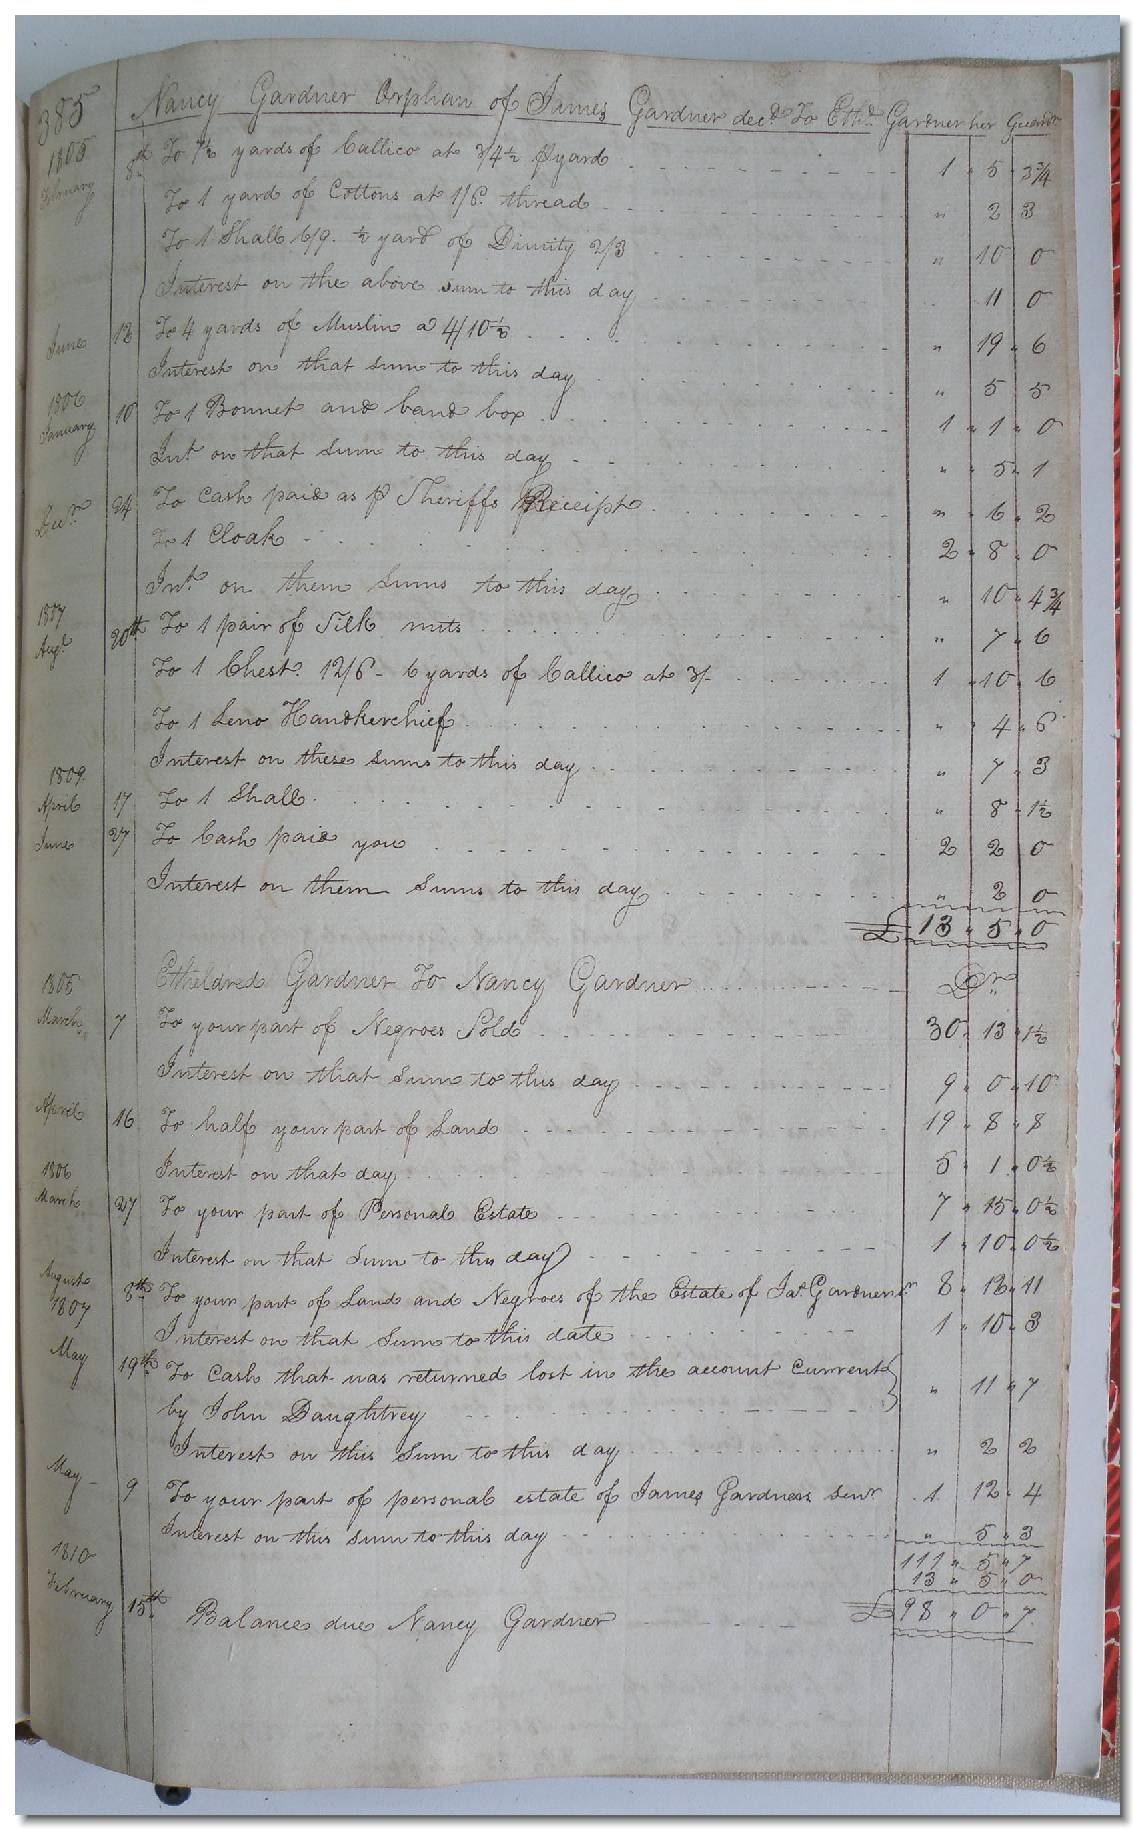 385
Nancy Gardner Orphan of James Gardner decd. To Ethd. Gardner her Guardn
1805 February 8th To 7½ yards of Callico at 3/4½ p yard 1 " 5 " 3¾
To 1 yard of Cottons at 1/6. thread " 2 3
To 1 Shall 6/9. ½ yard of Dimity 2/3 " 10 0
Interest on the above sum to this day 11 0
June 13 To 4 yards of Muslin a 4/10½ " 19 " 6
Interest on that sum to this day " 5 5
1806 January 10 To 1 Bonnet and band box 1 " 1 " 0
Int. on that sum to this day " 5 " 1
Decr. 24 To Cash paid as p Sheriffs Receipt " 6 " 2
To 1 Cloak 2 " 8 " 0
Int. on them Sums to this day " 10 " 4¾
1807 Augt. 20th To 1 pair of Silk mits " 7 " 6
To 1 Chest. 12/6 - 6 yards of Callico at 3/- 1 " 10 " 6
To 1 Leno Handkerchief " 4 " 6
Interest on these sums to this day " 7 " 3
1809. April 17 To 1 Shall " 8 " 1½
June 27 To Cash paid you 2 2 0
Interest on them Sums to this day " 2 0
£ 13 " 5 " 0
Etheldred Gardner To Nancy Gardner Dr.
1805 March 7 To your part of Negroes Sold 30 " 13 " 1½
Interest on that Sum to this day 9 " 0 " 10
April 16 To half your part of Land 19 " 8 " 8
Interest on that day 5 " 1 " 0½
1806 March 27 To your part of Personal Estate 7 " 15 " 0½
Interest on that Sum to this day 1 " 10 " 0½
August 1807 8th To your part of Land and Negroes of the Estate of Jas. Gardner Sr 8 " 13 " 11
Interest on that Sum to this date 1 " 10 " 3
May 19th To Cash that was returned lost in the account Current
by John Daughtrey " 11 " 7
Interest on this Sum to this day " 2 2
May 9 To your part of personal estate of James Gardners Senr 1 12 " 4
Interest on this sum to this day " 5 " 3
111 " 5 " 7
13 " 5 " 0
1810 February 15th Balance due Nancy Gardner £ 98 " 0 " 7